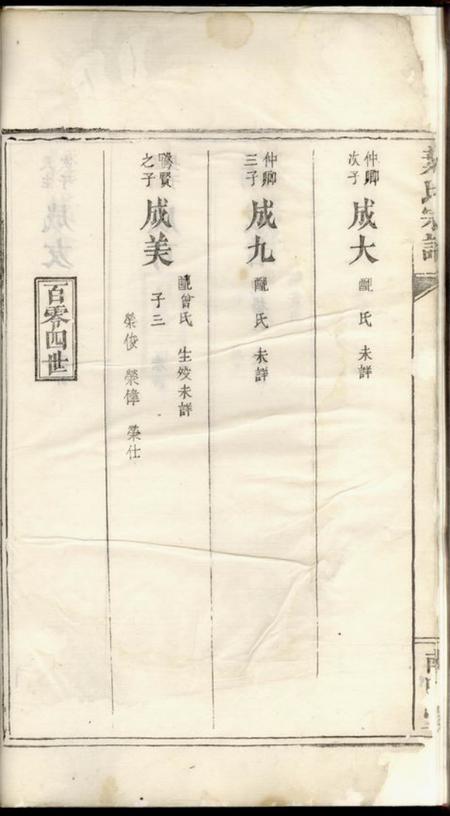 氏宗譜
仲卿次子 成大 配 氏 未詳
仲卿三子 成九 配 氏 未詳
賢之子 成美 配曾氏 生歿未詳
子三
榮俊 榮偉 榮仕
百零四世